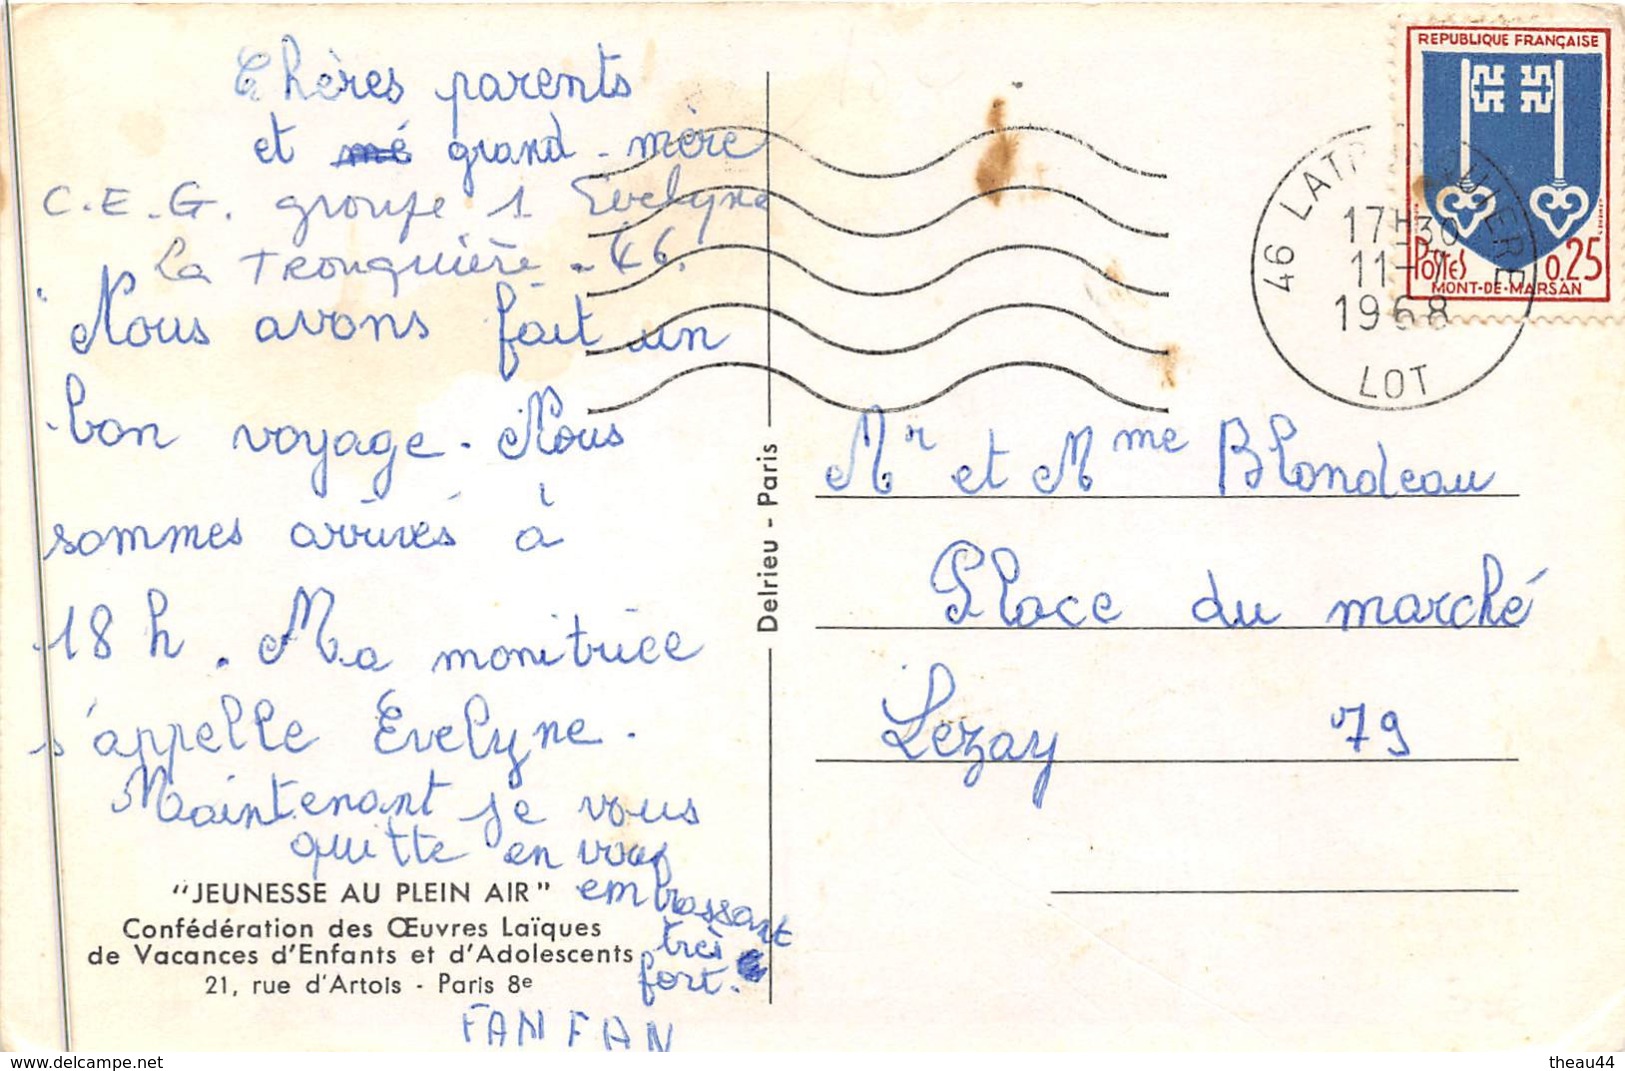 Chères parents
et mé grand-mère
C.E.G. groupe 1 Evelyne
La Tronquière - 46.
Nous avons fait un
bon voyage. Nous
sommes arrivés à
18 h. Ma monitrice
s'appelle Evelyne.
Maintenant je vous
quitte en vous
embrassant
très
fort.
FANFAN
"JEUNESSE AU PLEIN AIR"
Confédération des Œuvres Laïques
de Vacances d'Enfants et d'Adolescents
21, rue d'Artois - Paris 8e
Delrieu - Paris
REPUBLIQUE FRANÇAISE
Postes 0,25
MONT-DE-MARSAN
17H30
11-7
1968
LOT
Mr et Mme Blondeau
Place du marché
Lezay 79
https://www.delcampe.net
theau44